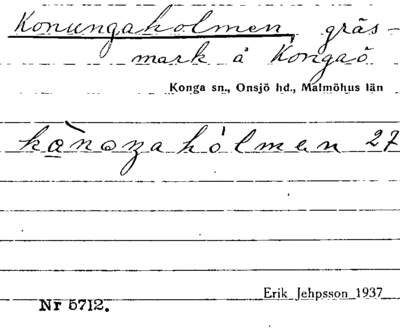 Konungaholmen, gräs-
mark å Kongaö.
Konga sn., Onsjö hd., Malmöhus län
27
Erik Jehpsson 1937
Nr 5712.